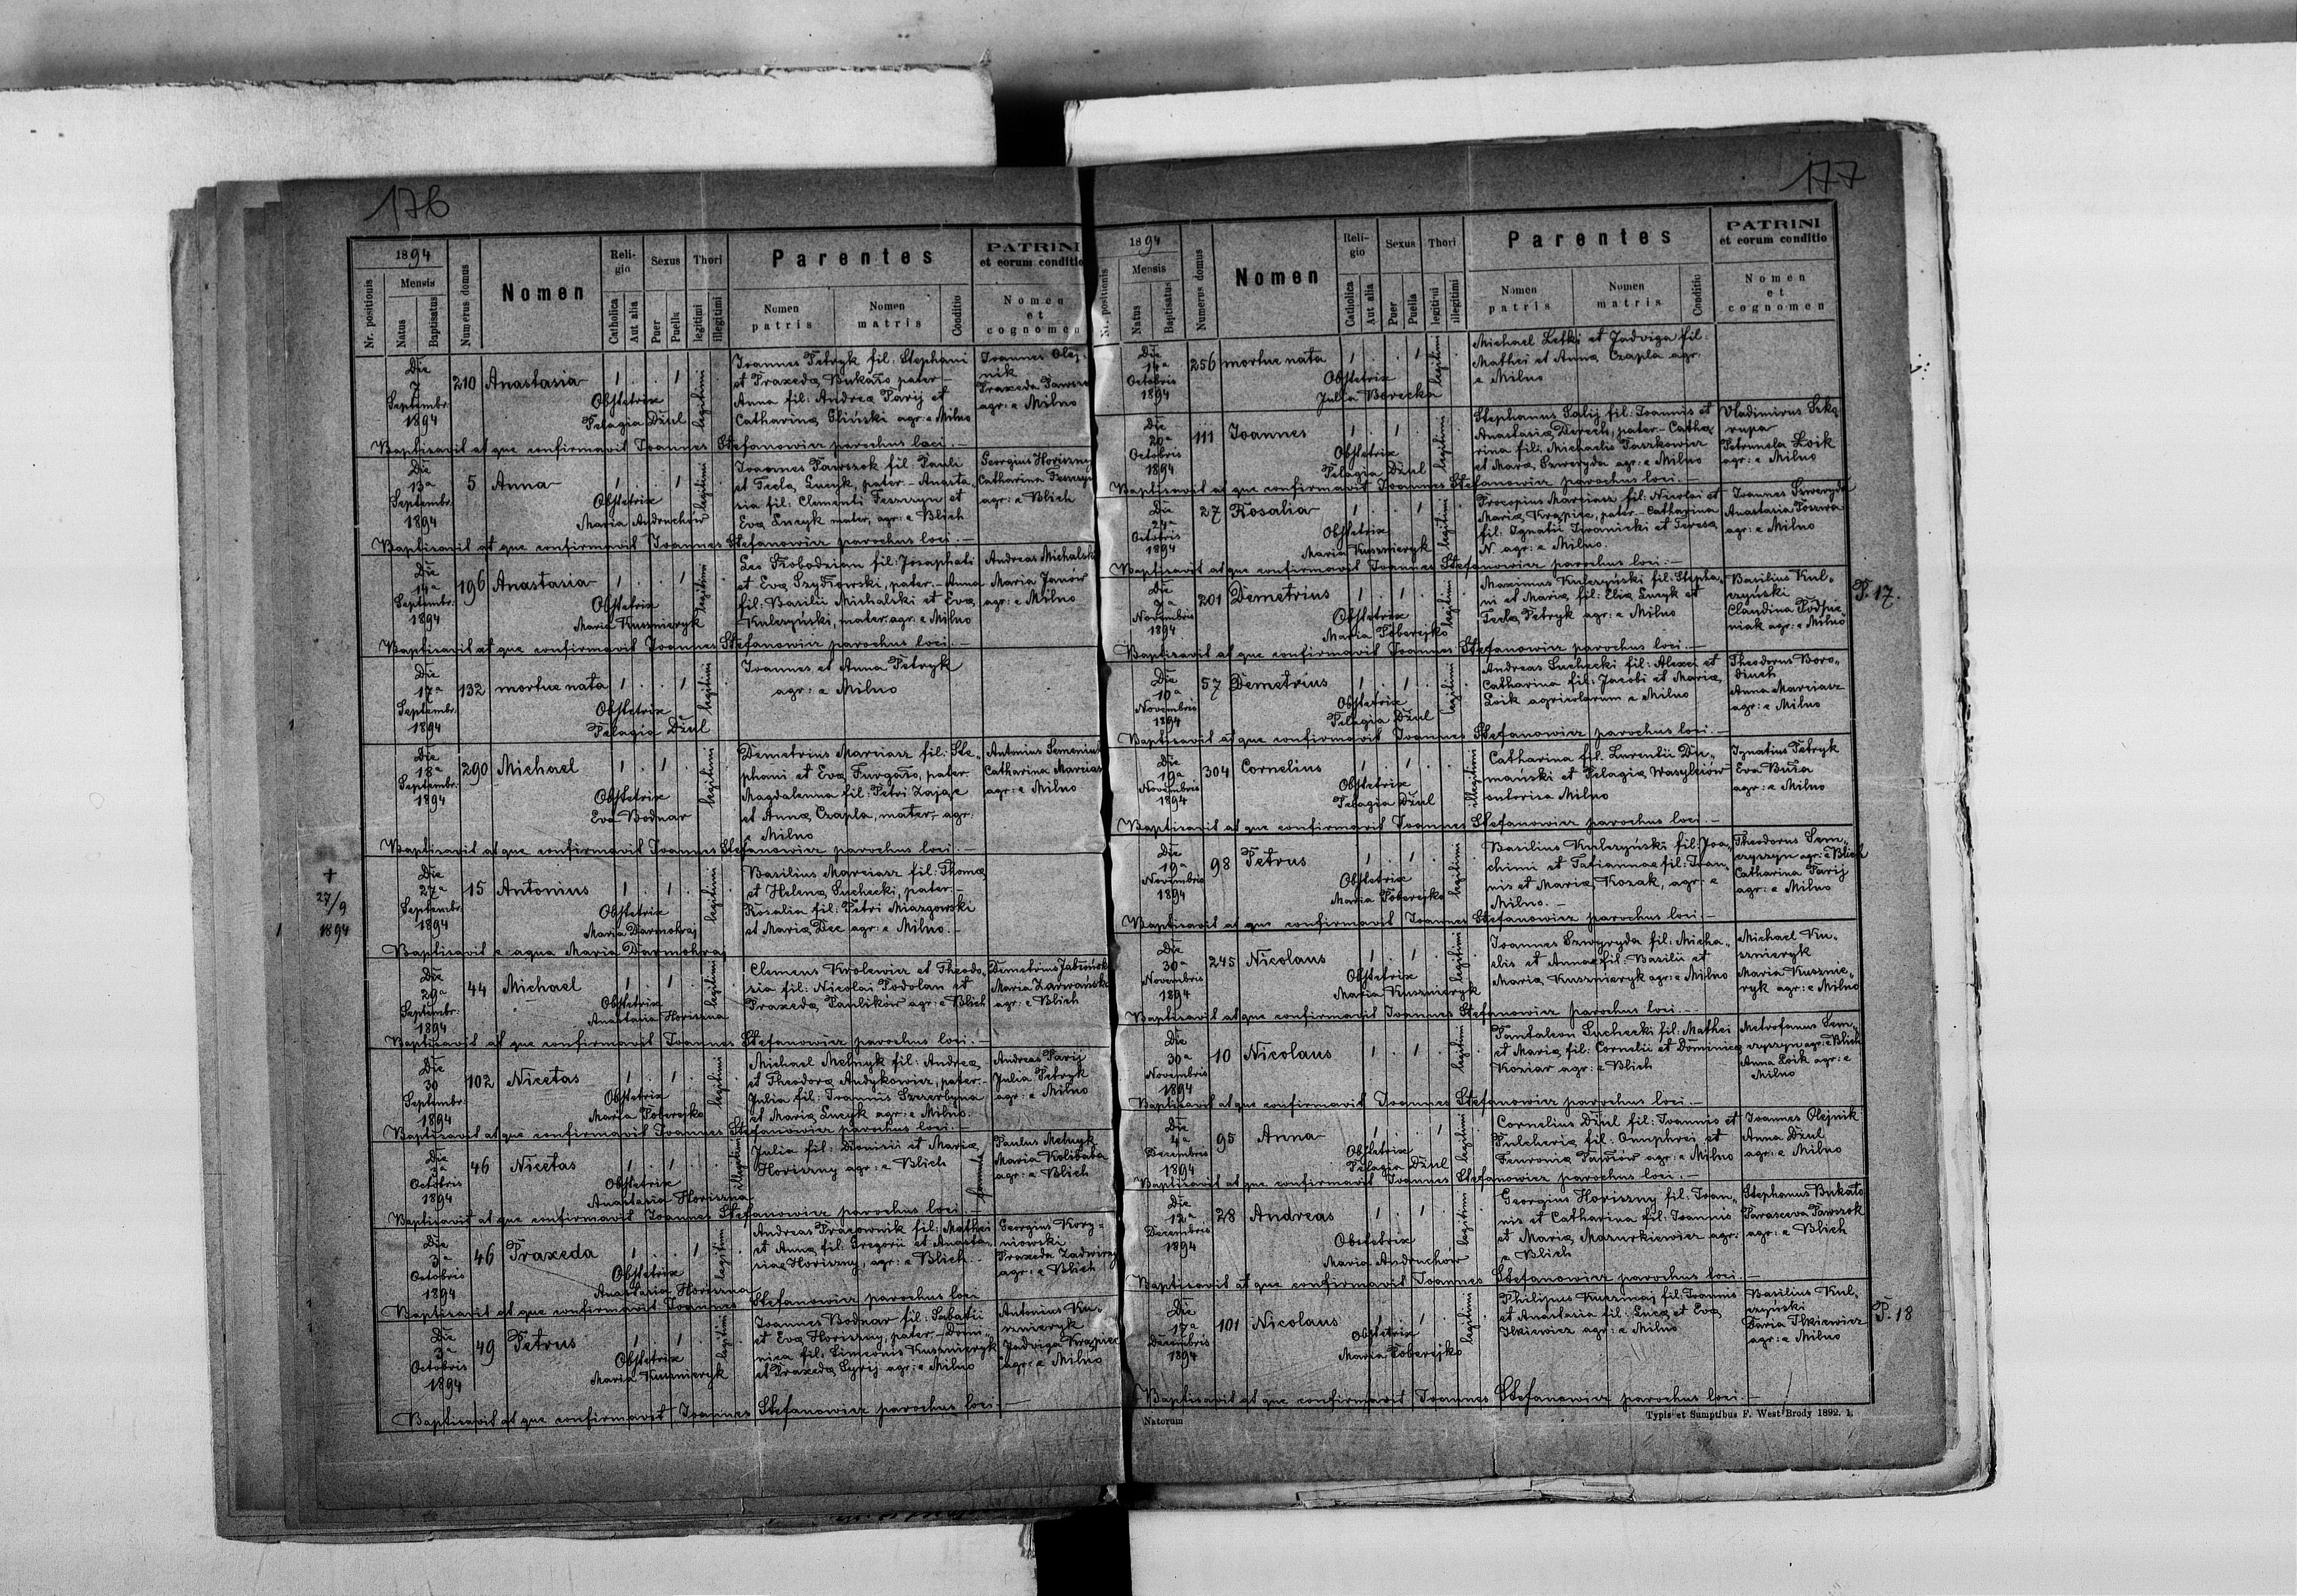 176
1894
Nr. positionis
Mensis
Natus
Baptisatus
Numerus domus
Nomen
Religio
Catholica
Aut alia
Sexus
Puer
Puella
Thori
legitimi
illegitimi
Parentes
Nomen patris
Nomen matris
Conditio
PATRINI
et eorum conditio
Nomen
et
cognomen
Die 7 Septembr. 1894
210 Anastasia 1 . . 1 legitimi
Obstetrix
Pelagia Dżul
Joannes Petryk fil: Stephani
et Praxeda Bukało pater –
Anna fil: Andrea Parij et
Catharina Gliński agr: e Milno
Joannes Olej-
nik
Praxeda
agr: e Milno
Baptisavit at que confirmavit Joannes Stefanowicz parochus loci. –
Die 13a Septembr. 1894
5 Anna 1 . . 1 legitimi
Obstetrix
Maria Andruchów
Joannes Pawszok fil: Pauli
et Tecla Lucyk, pater. – Anasta-
sia fil: Clementi Feszczyn et
Eva Lucyk mater, agr: e Blich
Georgius Horiszny
Catharina
agr: e Blich
Baptisavit at que confirmavit Joannes Stefanowicz parochus loci. –
Die 14a Septembr. 1894
196 Anastasia 1 . . 1 legitimi
Obstetrix
Maria Kusznieryk
Leo Słobodzian fil: Josaphati
et Eva Szydłowski, pater. – Anna
fil: Basilii Michalski et Eva
Kulczyński, mater. agr: e Milno
Andreas Michalski
Maria Janów
agr: e Milno
Baptisavit at que confirmavit Joannes Stefanowicz parochus loci. –
Die 17a Septembr. 1894
132 mortue nata 1 . . 1 legitimi
Obstetrix
Pelagia Dżul
Joannes et Anna Petryk
agr: e Milno
Die 18a Septembr. 1894
290 Michael 1 . 1 . legitimi
Obstetrix
Eva Bodnar
Demetrius Marciasz fil: Ste-
phani et Eva Furgało, pater.
Magdalenna fil: Petri Zając
et Anna Czapla, mater, agr.
e Milno
Antonius Semeniuk
Catharina Marciasz
agr: e Milno
Baptisavit at que confirmavit Joannes Stefanowicz parochus loci. –
+
27/9
1894
Die 27a Septembr. 1894
15 Antonius 1 . 1 . legitimi
Obstetrix
Maria Darmohraj
Basilius Marciasz fil: Thoma
et Helena Suchecki, pater. –
Rosalia fil: Petri Miazgowski
et Maria Dec agr: e Milno. –
Baptisavit e aqua Maria Darmohraj
Die 29a Septembr. 1894
44 Michael 1 . 1 . legitimi
Obstetrix
Anastasia Horiszna
Clemens Krolewicz et Theodo-
sia fil: Nicolai Podolan et
Praxeda Paulików agr: e Blich
Demetrius Jabłoński
Maria Zarwańska
agr: e Blich
Baptisavit at que confirmavit Joannes Stefanowicz parochus loci. –
Die 30 Septembr. 1894
102 Nicetas 1 . 1 . legitimi
Obstetrix
Maria Poberejko
Michael Melnyk fil: Andrea
et Theodora Andykowicz, pater. –
Julia fil: Joannis Szczerbyna
et Maria Lucyk agr: e Milno.
Andreas Parij
Julia Petryk
agr: e Milno
Baptisavit at que confirmavit Joannes Stefanowicz parochus loci. –
Die Octobris 1894
46 Nicetas 1 . 1 . illegitimi
Obstetrix
Anastasia Horiszna
Julia fil: Dionisii et Maria
Horiszny agr: e Blich
famula
Paulus Melnyk
Maria Kolibaba
agr: e Blich
Baptisavit at que confirmavit Joannes Stefanowicz parochus loci. –
Die 3a Octobris 1894
46 Praxeda 1 . . 1 legitimi
Obstetrix
Anastasia Horiszna
Andreas Pracownik fil: Mathei
et Anna fil: Gregorii et Anasta-
siae Horiszny, agr: e Blich. –
Georgius Kory-
niowski
Praxeda Zadwirny
agr: e Blich
Baptisavit at que confirmavit Joannes Stefanowicz parochus loci
Die 3a Octobris 1894
49 Petrus 1 . 1 . legitimi
Obstetrix
Maria Kusznieryk
Joannes Bodnar fil: Sabatii
et Eva Horiszny, pater – Domi-
nica fil: Simeonis Kusznieryk
et Praxeda Syrij agr: e Milno
Antonius Ku-
sznieryk
Jadviga Krąpiec
agr: e Milno
Baptisavit at que confirmavit Joannes Stefanowicz parochus loci. –
177
1894
Nr. positionis
Mensis
Natus
Baptisatus
Numerus domus
Nomen
Religio
Catholica
Aut alia
Sexus
Puer
Puella
Thori
legitimi
illegitimi
Parentes
Nomen patris
Nomen matris
Conditio
PATRINI
et eorum conditio
Nomen
et
cognomen
Die 14a Octobris 1894
256 mortue nata 1 . . 1 legitimi
Obstetrix
Julia Berecka
Michael Letki et Jadviga fil:
Mathei et Anna Czapla agr.
e Milno
Die 20a Octobris 1894
111 Joannes 1 . 1 . legitimi
Obstetrix
Pelagia Dżul
Stephanus Salij fil: Joannis et
Anastasia Derech, pater – Catha-
rina fil: Michaelis Paszkowicz
et Maria Szweryda agr: e Milno
Vladimirus Szka-
rupa
Petrunela Łoik
agr: e Milno
Baptisavit at que confirmavit Joannes Stefanowicz parochus loci. –
Die 24a Octobris 1894
27 Rosalia 1 . . 1 legitimi
Obstetrix
Maria Kusznieryk
Procopius Marciasz fil: Nicolai et
Maria Krąpiec, pater – Catharina
fil: Ignatii Iwanicki et Teresa
N. agr: e Milno.
Joannes Szweryda
Anastasia
agr: e Milno
Baptisavit at que confirmavit Joannes Stefanowicz parochus loci. –
Die 7a Novembris 1894
201 Demetrius 1 . 1 . legitimi
Obstetrix
Maria Poberejko
Maximus Kulczyński fil: Stepha-
ni et Maria fil: Elia Lucyk et
Tecla Petryk agr: e Milno
Basilius Kul-
czyński
Claudina Podfic-
niak agr: e Milno
P. 17.
Baptisavit at que confirmavit Joannes Stefanowicz parochus loci. –
Die 10a Novembris 1894
57 Demetrius 1 . 1 . legitimi
Obstetrix
Pelagia Dżul
Andreas Suchecki fil: Alexei et
Catharina fil: Jacobi et Maria
Łoik agricolarum e Milno
Theodorus Boro-
diuch
Anna Marciasz
agr: e Milno
Baptisavit at que confirmavit Joannes Stefanowicz parochus loci. –
Die 19a Novembris 1894
304 Cornelius 1 . 1 . illegitimi
Obstetrix
Pelagia Dżul
Catharina fil. Laurentii Du-
mański et Pelagia Wasylciów
sutorisa Milno
Ignatius Petryk
Eva Buła
agr: e Milno
Baptisavit at que confirmavit Joannes Stefanowicz parochus loci. –
Die 19a Novembris 1894
98 Petrus 1 . 1 . legitimi
Obstetrix
Maria Poberejko
Basilius Kulczyński fil: Joa-
chimi et Tatiannae fil: Joan-
nis et Maria Kozak, agr: e
Milno. –
Theodorus Sem-
czyszyn agr: e Blich
Catharina Parij
agr: e Milno
Baptisavit at que confirmavit Joannes Stefanowicz parochus loci –
Die 30a Novembris 1894
245 Nicolaus 1 . 1 . legitimi
Obstetrix
Maria Kusznieryk
Joannes Szwyryda fil: Micha-
elis et Annae fil: Basilii et
Maria Kusznieryk agr: e Milno
Michael Ku-
sznieryk
Maria Kusznie-
ryk agr: e Milno
Baptisavit at que confirmavit Joannes Stefanowicz parochus loci. –
Die 30a Novembris 1894
10 Nicolaus 1 . 1 . legitimi
Pantaleon Suchecki fil: Mathei
et Maria fil: Cornelii et Dominica
Koziar agr: e Blich
Metrofanus Sem-
czyszyn agr: e Blich
Anna Łoik agr: e
Milno
Baptisavit at que confirmavit Joannes Stefanowicz parochus loci. –
Die 4a Decembris 1894
95 Anna 1 . . 1 legitimi
Obstetrix
Pelagia Dżul
Cornelius Dżul fil: Joannis et
Pulcheria fil: Onuphrei et
Feuronia Pawłów agr: e Milno
Joannes Olejnik
Anna Dżul
agr: e Milno
Baptisavit at que confirmavit Joannes Stefanowicz parochus loci. –
Die 12a Decembris 1894
28 Andreas 1 . 1 . legitimi
Obstetrix
Maria Andruchów
Georgius Horiszny fil: Joan-
nis et Catharina fil: Joannis
et Maria Mazurkiewicz agr:
e Blich
Stephanus Bukało
Parasceva Pawszok
agr: e Blich
Baptisavit at que confirmavit Joannes Stefanowicz parochus loci. –
Die 17a Decembris 1894
101 Nicolaus 1 . 1 . legitimi
Obstetrix
Maria Poberejko
Philipus Kuszmaj fil: Joannis
et Anastasia fil: Luca et Eva
Ilkiewicz agr: e Milno
Basilius Kul-
czyński
Daria Ilkiewicz
agr: e Milno
P. 18
Baptisavit at que confirmavit Joannes Stefanowicz parochus loci. –
Natorum
Typis et Sumptibus F. West Brody 1892. 1.